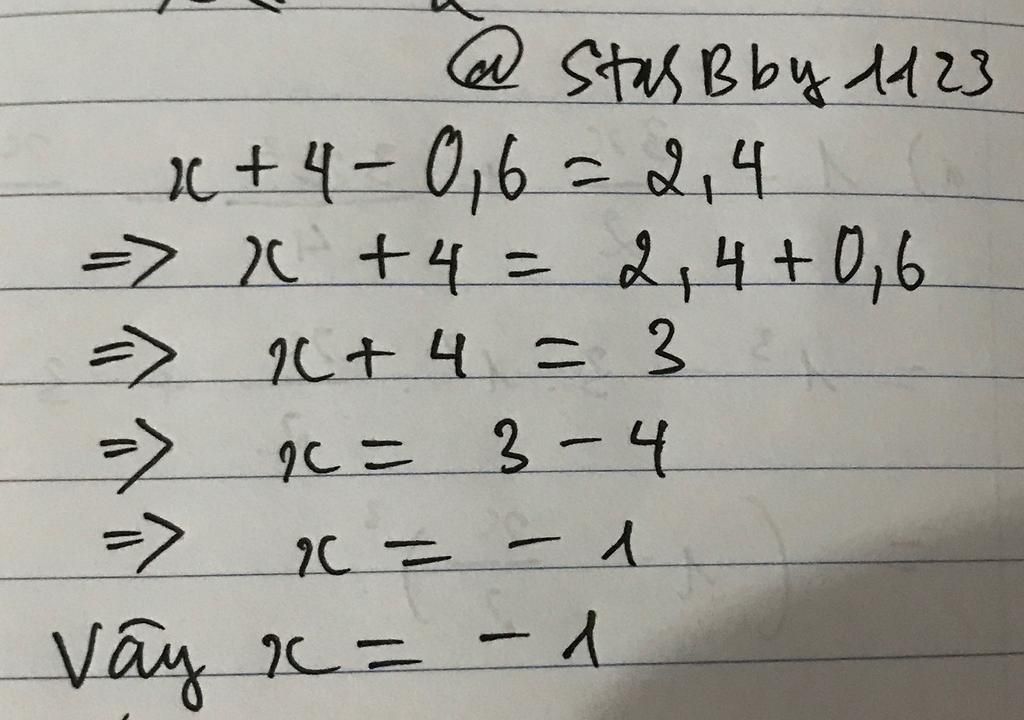 @ StasBby 1123
x + 4 - 0,6 = 2,4
=> x + 4 = 2,4 + 0,6
=> x + 4 = 3
=> x = 3 - 4
=> x = - 1
Vậy x = - 1